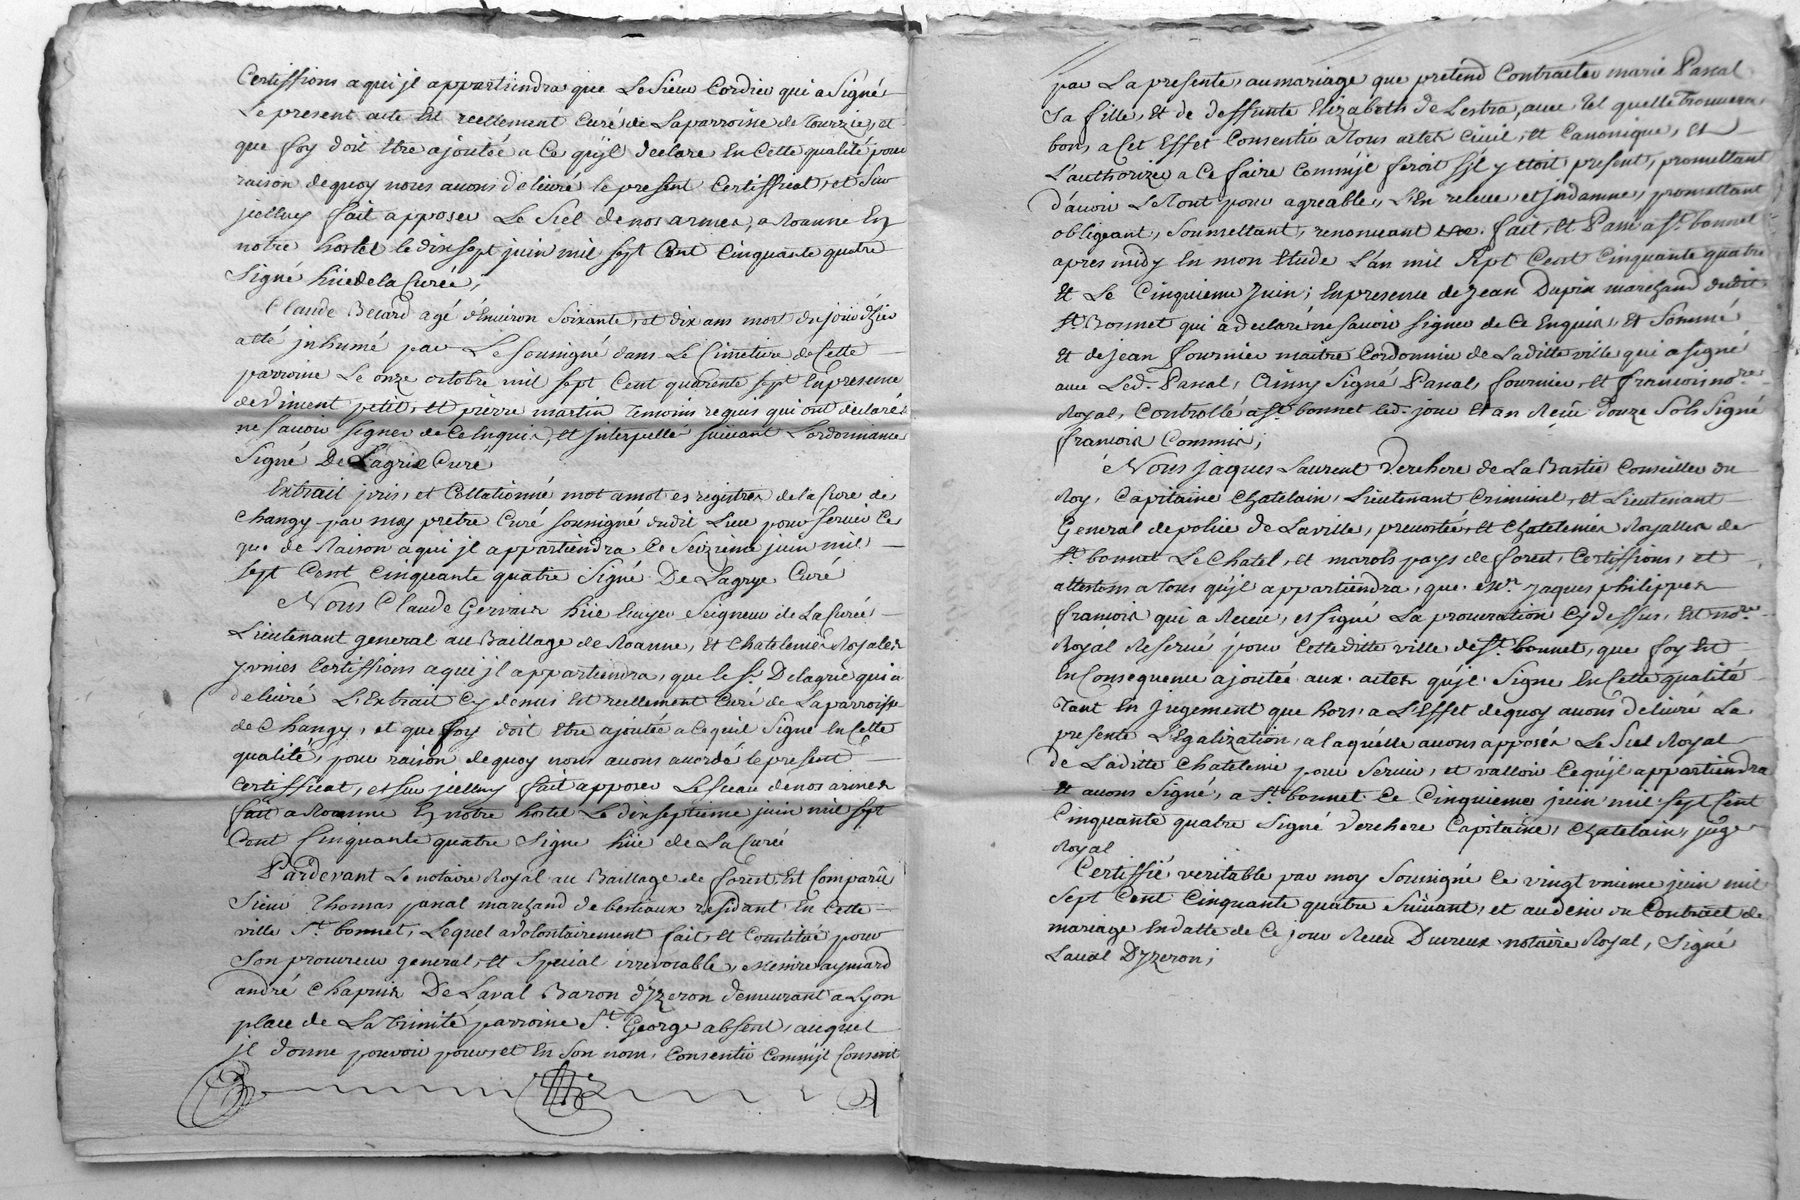 Certiffions a qui jl appartiendra que Le Sieur Cordier qui a Signé
Le present acte Est reellement Curé de Laparroisse de Tourzie, et
que foy doit Etre ajoutée a Ce quyl declare En Cette qualité pour
raison dequoy nous avons delivré le present Certifficat, et Sur
jcelluy fait apposer Le Scel de nos armes, a Roanne En
notre hostel le dix sept juin mil sept Cent Cinquante quatre
Signé hüe de la Curée,
Claude Berard agé d'Environ Soixante et dix ans mort du jour d'hier
a été jnhumé par Le Sousigné dans Le Cimetiere de Cette
parroisse Le onze octobre mil sept Cent quarente sept En presence
de Vincent petit, et pierre martin Temoins requis qui ont declarés
ne Savoir Signer de Ce Enquis, et jnterpellé suivant L'ordonnance
Signé De Lagrie Curé
Extrait pris, et Collationné mot amot es registres de la Cure de
Changy par moy pretre Curé sousigné dudit Lieu pour servir Ce
que de Raison a qui jl appartiendra Ce Seizieme juin mil
sept Cent Cinquante quatre Signé De Lagrye Curé
Nous Claude Gervais hüe Ecuyer Seigneur de La Curée
Lieutenant general au Baillage de Roanne, et Chatelenies Royales
y unies Certiffions a qui jl appartiendra, que le Sr. Delagrie qui a
delivré L'Extrait Cy dessus Est reellement Curé de La parroisse
de Changy, et que foy doit Etre ajoutée a Ce quil Signe En Cette
qualité, pour raison dequoy nous avons accordé le present
Certifficat, et sur jcelluy fait apposer Le sceau de nos armes
fait a Roanne En notre hostel Le dix septieme juin mil sept
Cent Cinquante quatre Signé hüe de La Curée
Pardevant Le notaire Royal au Baillage de forest Est Comparû
Sieur Thomas panal marchand de bestiaux residant En Cette
ville St. bonnet, Lequel a volontairement fait, et Constitué pour
Son procureur general, et Special irrevocable, Messire aymard
andré Chapuis De Laval Baron d'yzeron demeurant a Lyon
place de La trinité parroisse St. George absent, auquel
jl donne pouvoir pour, et En Son nom, Consentir Comm'jl Consent
par La presente, au mariage que pretend Contracter marie Panal
Sa fille, et de deffunte Elizabeth de Lestra, avec Tel quelle Trouvera
bon, a Cet Effet Consentir a Tous actes Civil, et Canonique, et
L'authorizer a Ce faire Comm'jl feroit S'jl y etoit present, promettant
d'avoir Le Tout pour agreable, L'En relever, et jndamner, promettant
obligeant, Soumettant, renoncant fait, et Passé a St. bonnet
apres midy En mon Etude L'an mil Sept Cent Cinquante quatre
Et Le Cinquieme Juin; En presence de Jean Dupin marchand dudit
St. Bonnet qui a declaré ne savoir signer de Ce Enquis, et Sommé
Et de jean fournier maitre Cordonnier de Laditte ville qui a signé
avec Led. Panal, Ainsy Signé Panal, fournier, et francois nore.
Royal, Controllé a St. bonnet led. jour Et an Reçû douze Sols Signé
francois Commis;
Nous jaques Laurent Verchere de La Bastie Conseiller du
Roy, Capitaine Chatelain, Lieutenant Criminel, et Lieutenant
General de police de La ville, prevosté, et Chatelenies Royalles de
St. bonnet Le Chatel, et marols pays de forest, Certiffions, et
attestons a Tous qu'jl appartiendra, que Mr. jaques philippes
francois qui a Receu, et signé La procuration Cy dessus, Est nore.
Royal Reservé pour Cette ditte ville de St. bonnet, que foy Est
En Consequence ajoutée aux actes qu'jl Signe En Cette qualité
Tant En jugement que hors, a L'Effet dequoy avons delivré La
presente Legalization, a laquelle avons apposés Le Scel Royal
de Laditte Chatelenie pour Servir, et valloir Ce qu'jl appartiendra
Et avons Signé, a St. bonnet Ce Cinquieme juin mil sept Cent
Cinquante quatre Signé Verchere Capitaine, Chatelain, juge
Royal
Certiffié veritable par moy Sousigné Ce vingt unieme juin mil
Sept Cent Cinquante quatre Suivant, et au desir du Contract de
mariage En datte de Ce jour Receu Ducreux notaire Royal, Signé
Laval D'yzeron;